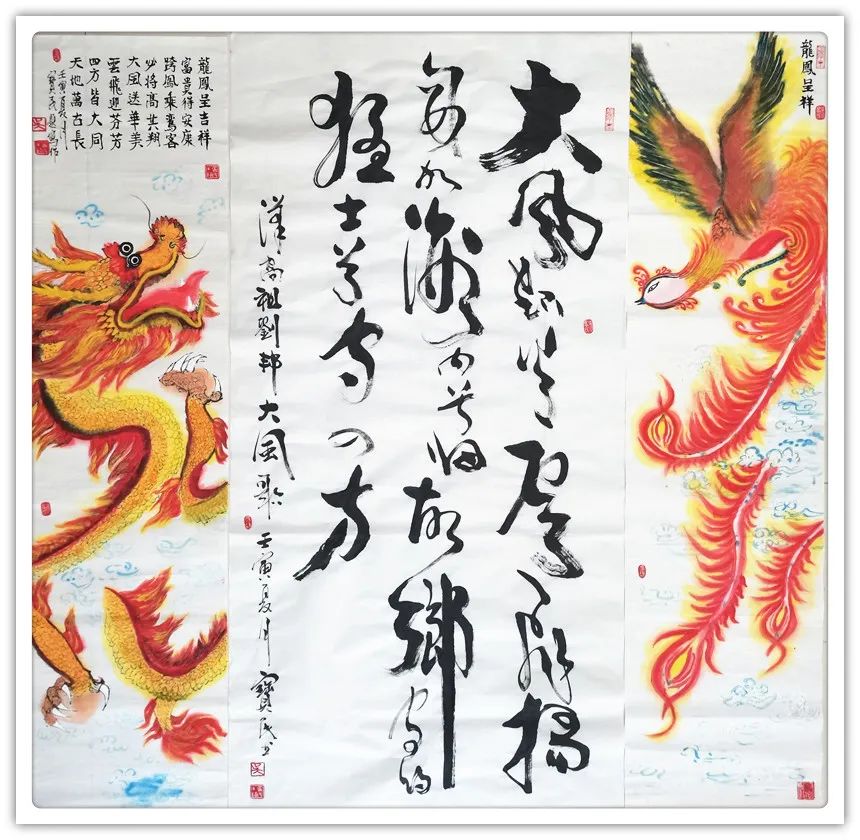 龍鳳呈祥
大風起兮雲飛揚
威加海内兮归故鄉安得
猛士兮守四方
漢高祖劉邦大風歌 壬寅夏月 寶民书
龍鳳呈吉祥
富貴得安康
跨鳳乘鸞客
必將高其翔
大風送華美
雲飛迎芬芳
四方皆大同
天地萬古長
壬寅夏月
寶民題